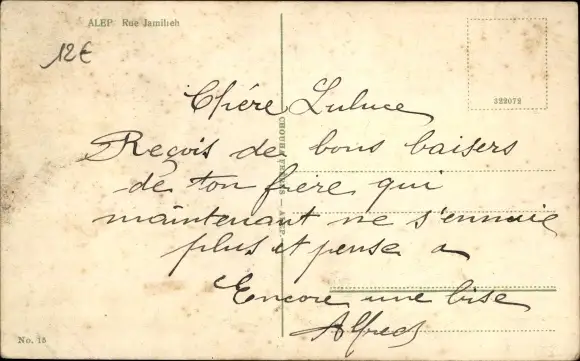 ALEP Rue Jamilieh
12€
322072
Chère Luluce
Reçois de bons baisers
de ton frère qui
maintenant ne s'ennuie
plus et pense a
Encore une bise
Alfred
CHOUHA FRÈRES — ALEP
No. 15